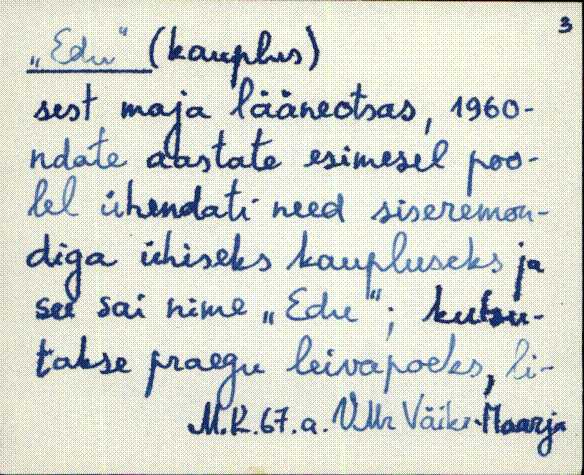 3
„Edu" (kauplus)
sest maja lääneotsas, 1960-
ndate aastate esimesel poo-
lel ühendati need siseremon-
diga ühiseks kaupluseks ja
see sai nime „Edu"; kutsu-
takse praegu leivapoeks, li-
M.K.67.a. V.Mr Väike-Maarja